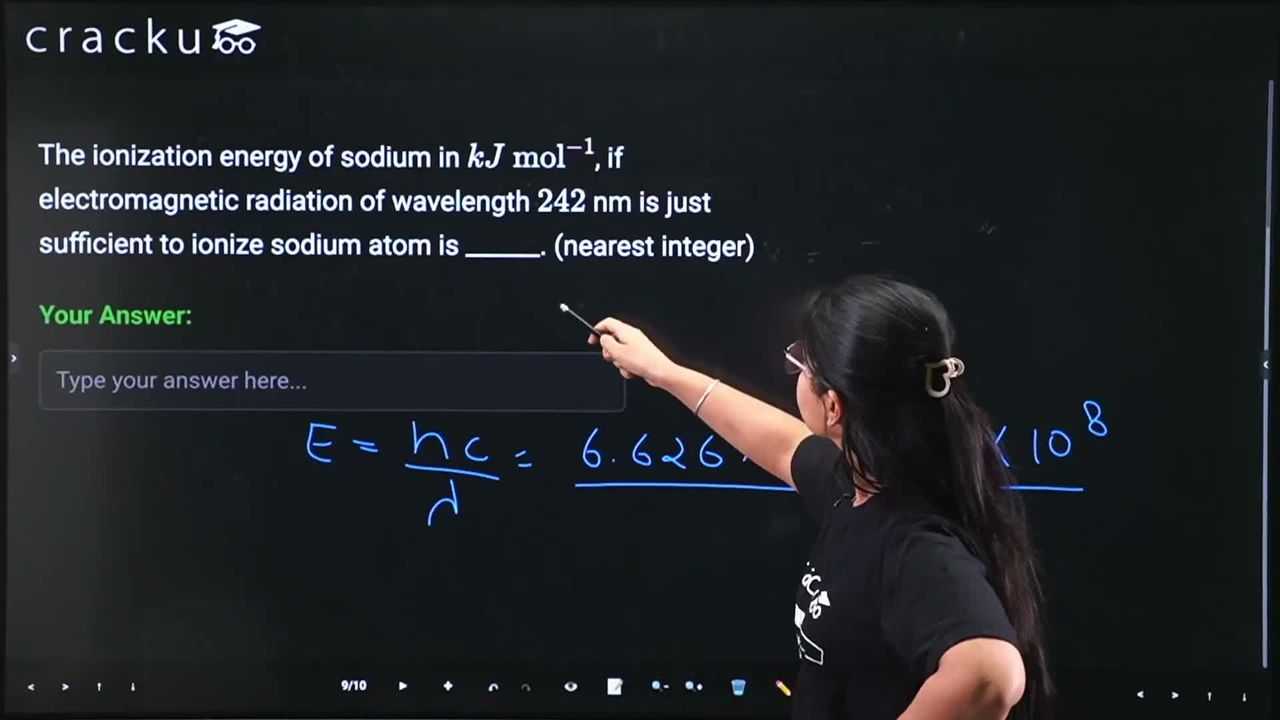 cracku
The ionization energy of sodium in kJ mol⁻¹, if
electromagnetic radiation of wavelength 242 nm is just
sufficient to ionize sodium atom is _____. (nearest integer)
Your Answer:
Type your answer here...
E = hc/λ = 6.626 × 10⁸
9/10